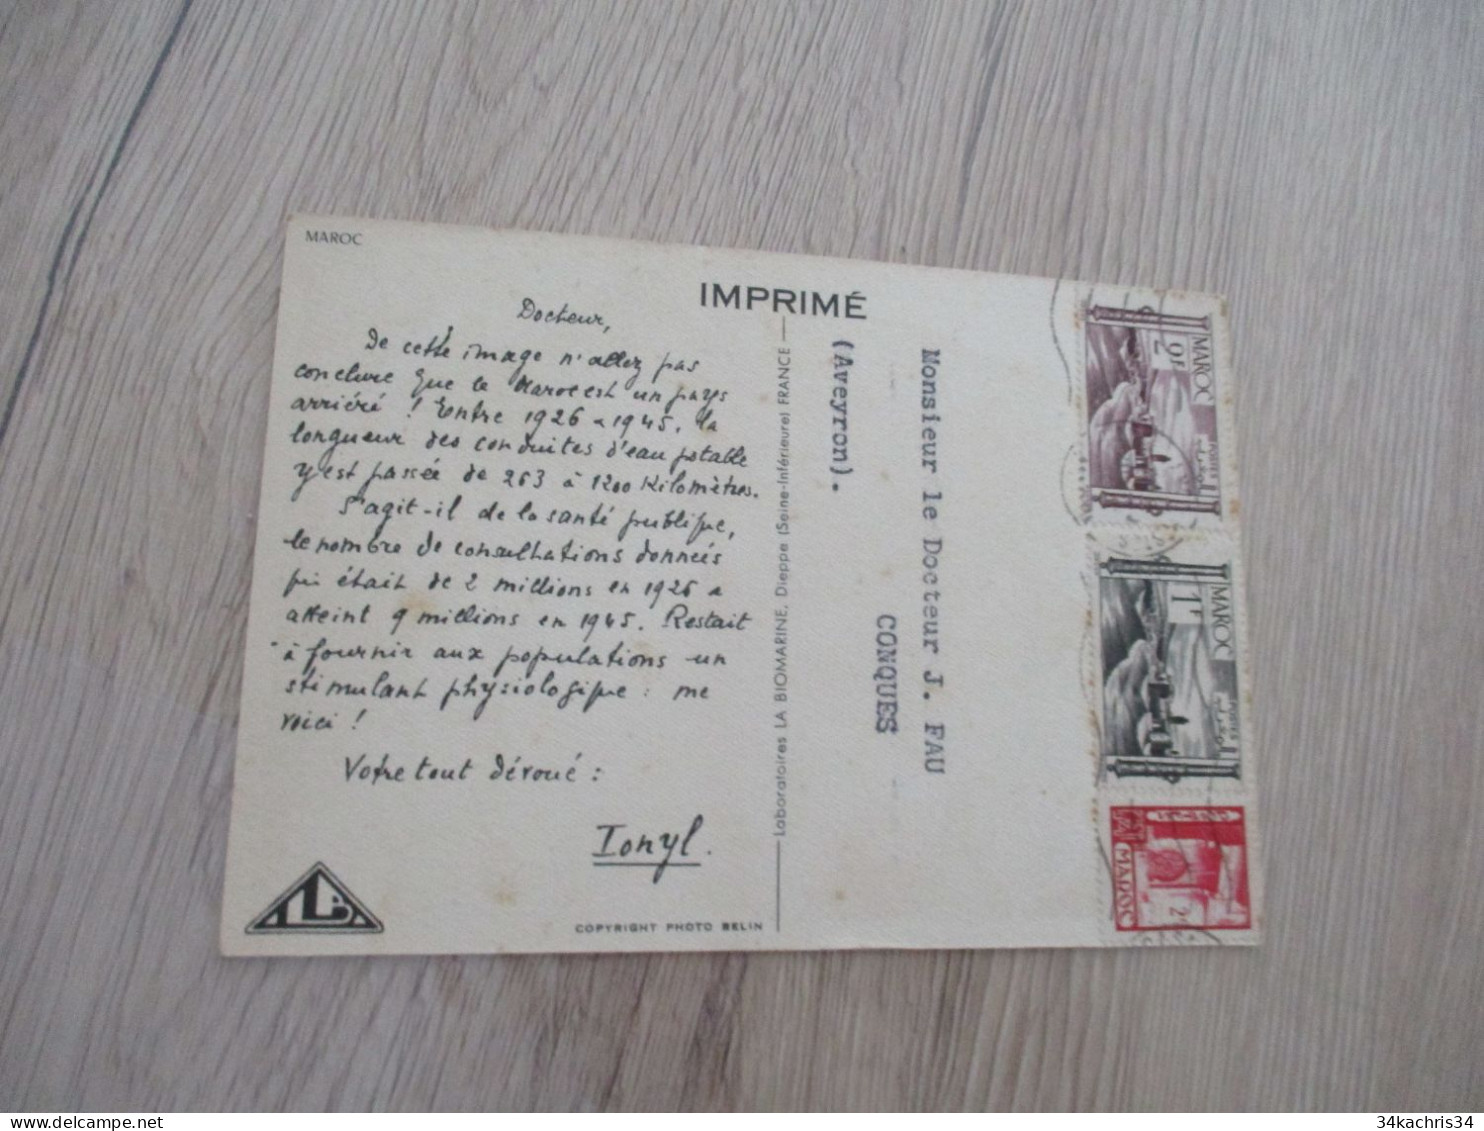 MAROC
IMPRIMÉ
Docteur,
De cette image n'allez pas
conclure que le Maroc est un pays
arriéré ! Entre 1926 & 1945, la
longueur des conduites d'eau potable
y est passée de 263 à 1200 Kilomètres.
S'agit-il de la santé publique,
le nombre de consultations données
qui était de 2 millions en 1926 a
atteint 9 millions en 1945. Restait
à fournir aux populations un
stimulant physiologique : me
voici !
Votre tout dévoué :
Ionyl.
COPYRIGHT PHOTO BELIN
Laboratoires LA BIOMARINE, Dieppe (Seine-Inférieure) FRANCE
Monsieur le Docteur J. FAU
CONQUES
(Aveyron).
MAROC
POSTES
2F
MAROC
POSTES
1F
MAROC
34kachris34
delcampe.net